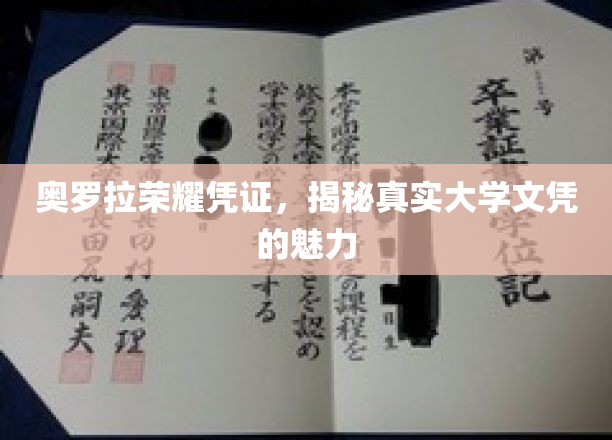 奥罗拉荣耀凭证，揭秘真实大学文凭
的魅力
第 号
卒業証 学位記
日生
本学商学部 定の課程を
修めて本学 ことを認め
学士(商学)の 与する
平成
東京国際大学 田村愛理
東京国際大 長田尻嗣夫